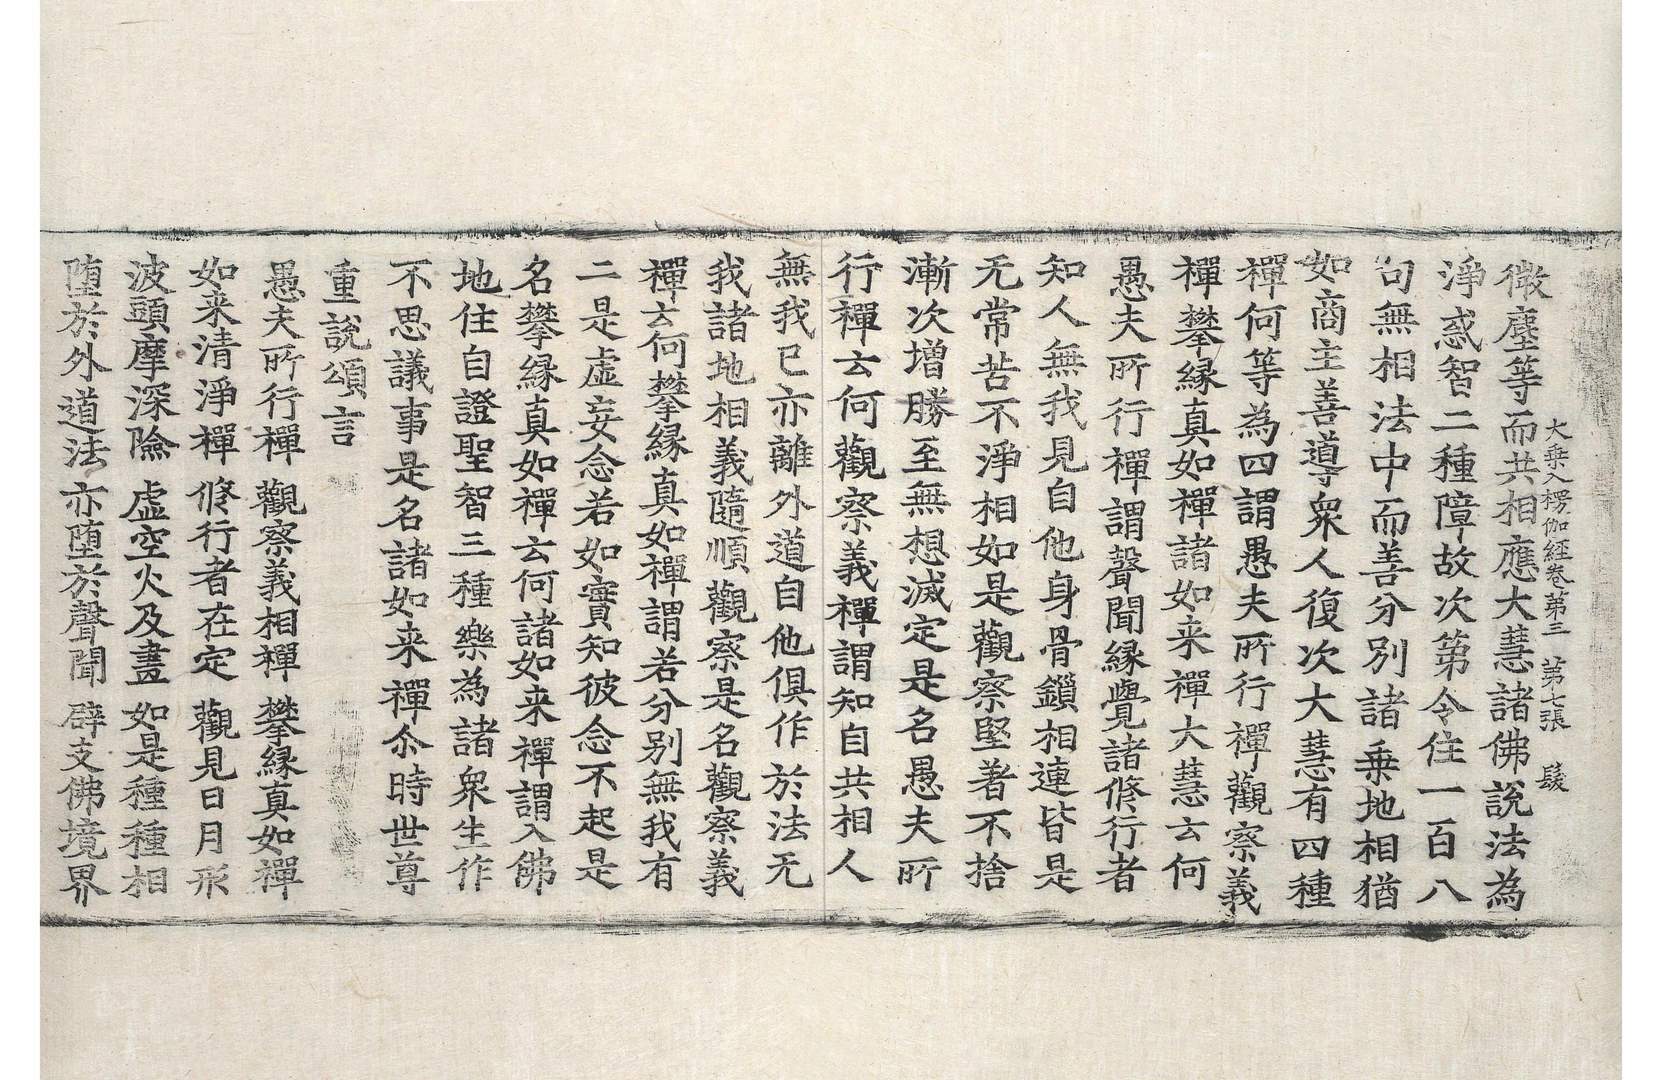 大乗入楞伽經卷第三　第七張　髮
微塵等而共相應大慧諸佛說法為
淨惑智二種障故次第令住一百八
句無相法中而善分別諸乗地相猶
如商主善導衆人復次大慧有四種
禪何等為四謂愚夫所行禪觀察義
禪攀緣真如禪諸如来禪大慧云何
愚夫所行禪謂聲聞緣覺諸修行者
知人無我見自他身骨鎖相連皆是
无常苦不淨相如是觀察堅著不捨
漸次增勝至無想滅定是名愚夫所
行禪云何觀察義禪謂知自共相人
無我已亦離外道自他俱作於法无
我諸地相義隨順觀察是名觀察義
禪云何攀緣真如禪謂若分別無我有
二是虛妄念若如實知彼念不起是
名攀緣真如禪云何諸如来禪謂入佛
地住自證聖智三種樂為諸衆生作
不思議事是名諸如来禪尒時世尊
重說頌言
愚夫所行禪　觀察義相禪　攀緣真如禪
如来清淨禪　修行者在定　觀見日月形
波頭摩深險　虛空火及盡　如是種種相
堕於外道法　亦堕於聲聞　辟支佛境界